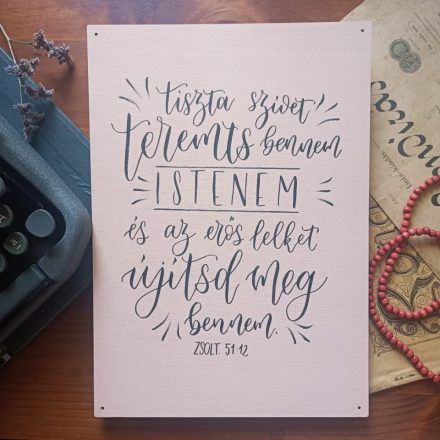 tiszta szívet
teremts bennem
ISTENEM
és az erős lelket
újítsd meg
bennem.
ZSOLT. 51:12